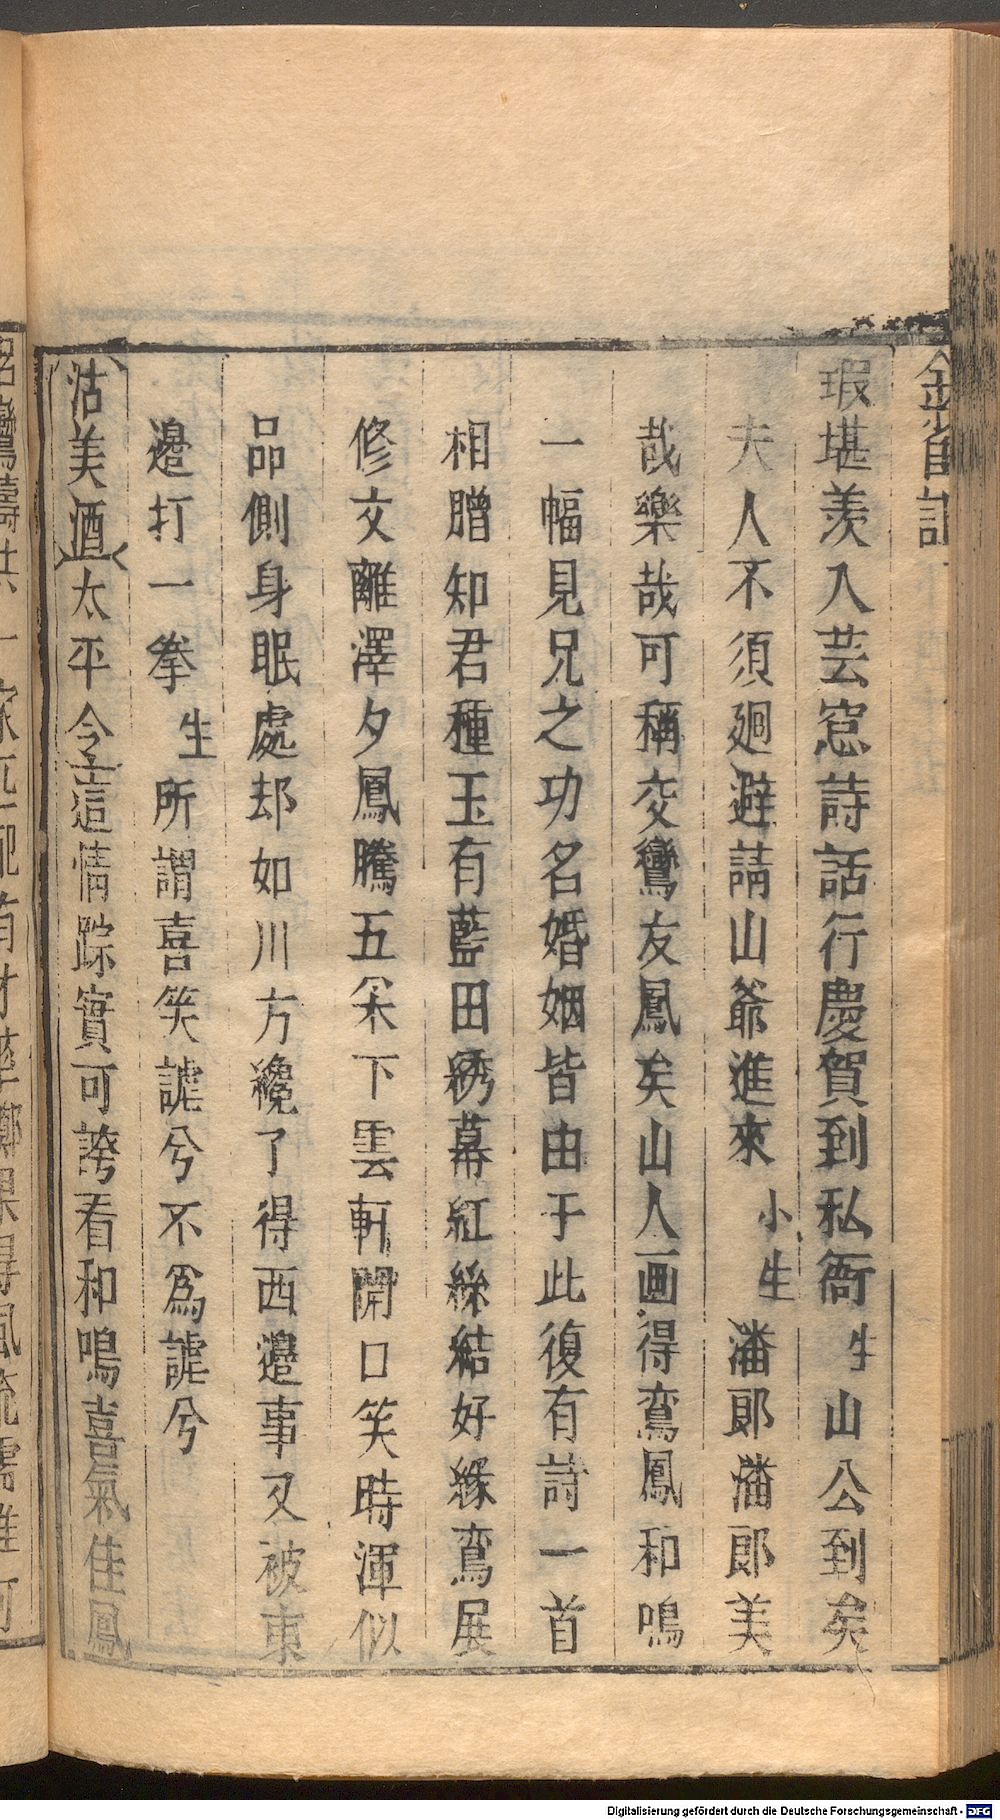 金雀記
瑕堪羨入芸窓詩話行慶賀到私衙生山公到矣
夫人不須廻避請山爺進來小生潘郎潘郎美
哉樂哉可稱交鸞友鳳矣山人画得鸾鳳和鳴
一幅見兄之功名婚姻皆由于此復有詩一首
相贈知君種玉有藍田綉幕紅絲結好緣鸾展
修文離澤夕鳳騰五采下雲軒開口笑時渾似
品側身眠處却如川方纔了得西邊事又被東
邊打一拳生所謂喜笑謔兮不為謔兮
沽美酒太平令這情踪實可誇看和鳴喜氣佳鳳
Digitalisierung gefördert durch die Deutsche Forschungsgemeinschaft - DFG